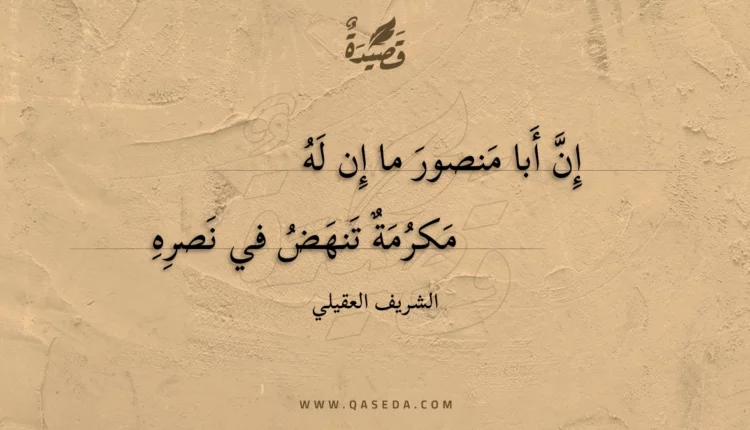 قَصِيدَةٌ
إِنَّ أَبا مَنصورَ ما إِن لَهُ
مَكرُمَةٌ تَنهَضُ في نَصرِهِ
الشريف العقيلي
WWW.QASEDA.COM